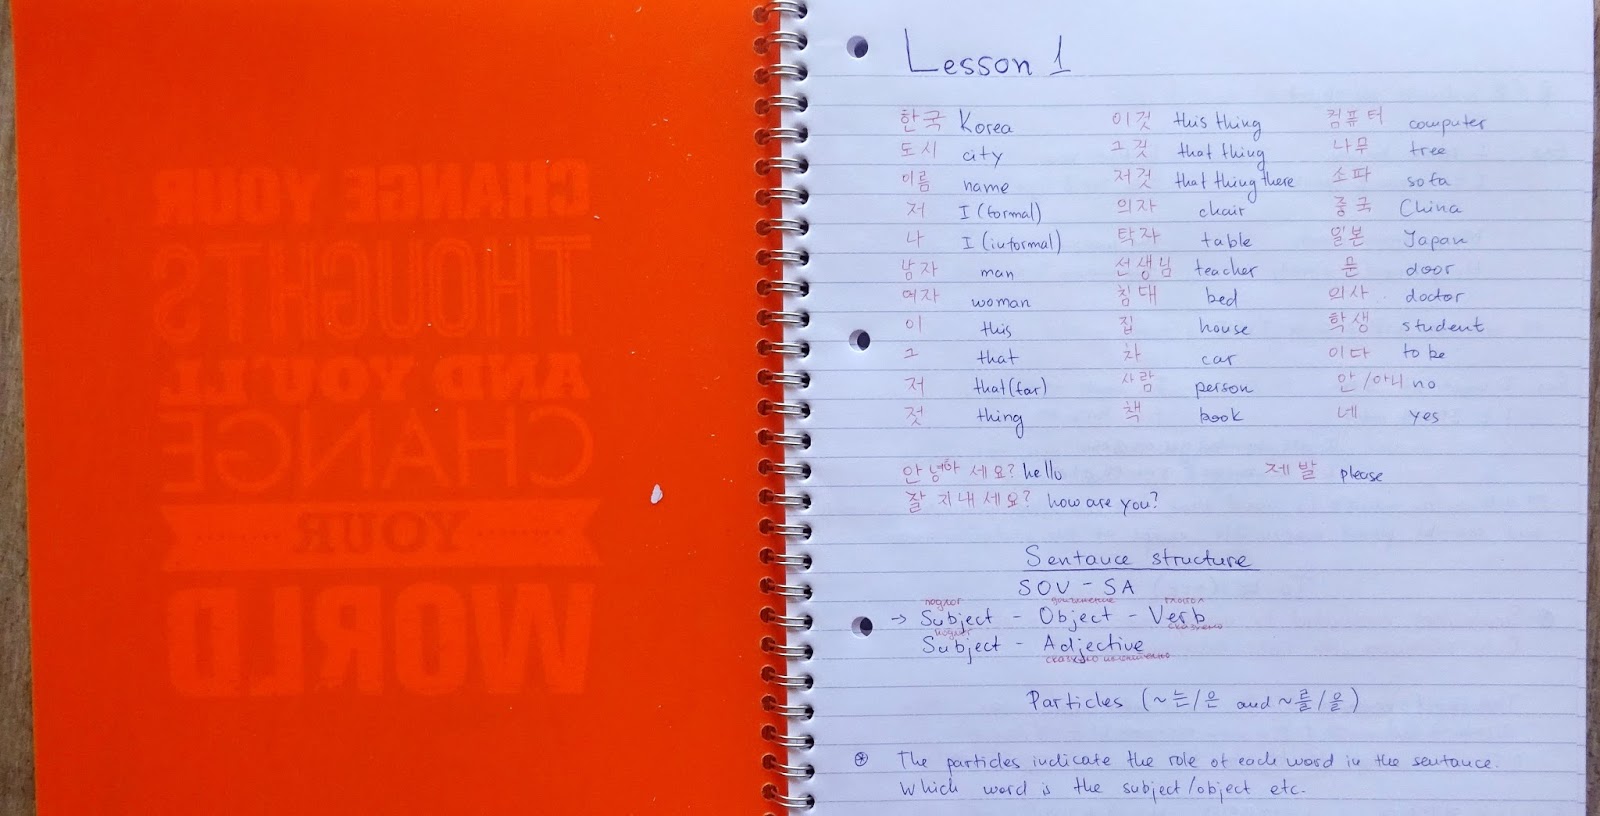 CHANGE YOUR
THOUGHTS
AND YOU'LL
CHANGE
YOUR
WORLD
Lesson 1
한국 Korea 이것 this thing 컴퓨터 computer
도시 city 그것 that thing 나무 tree
이름 name 저것 that thing there 소파 sofa
저 I (formal) 의자 chair 중국 China
나 I (informal) 탁자 table 일본 Japan
남자 man 선생님 teacher 문 door
여자 woman 침대 bed 의사 doctor
이 this 집 house 학생 student
그 that 차 car 이다 to be
저 that (far) 사람 person 안/아니 no
젓 thing 책 book 네 yes
안녕하세요? hello 제발 please
잘 지내세요? how are you?
Sentance structure
SOV - SA
подлог допълнение глагол
→ Subject - Object - Verb
подлог сказуемо
Subject - Adjective
Particles (~는/은 and ~를/을)
⊛ The particles indicate the role of each word in the sentance.
Which word is the subject/object etc.